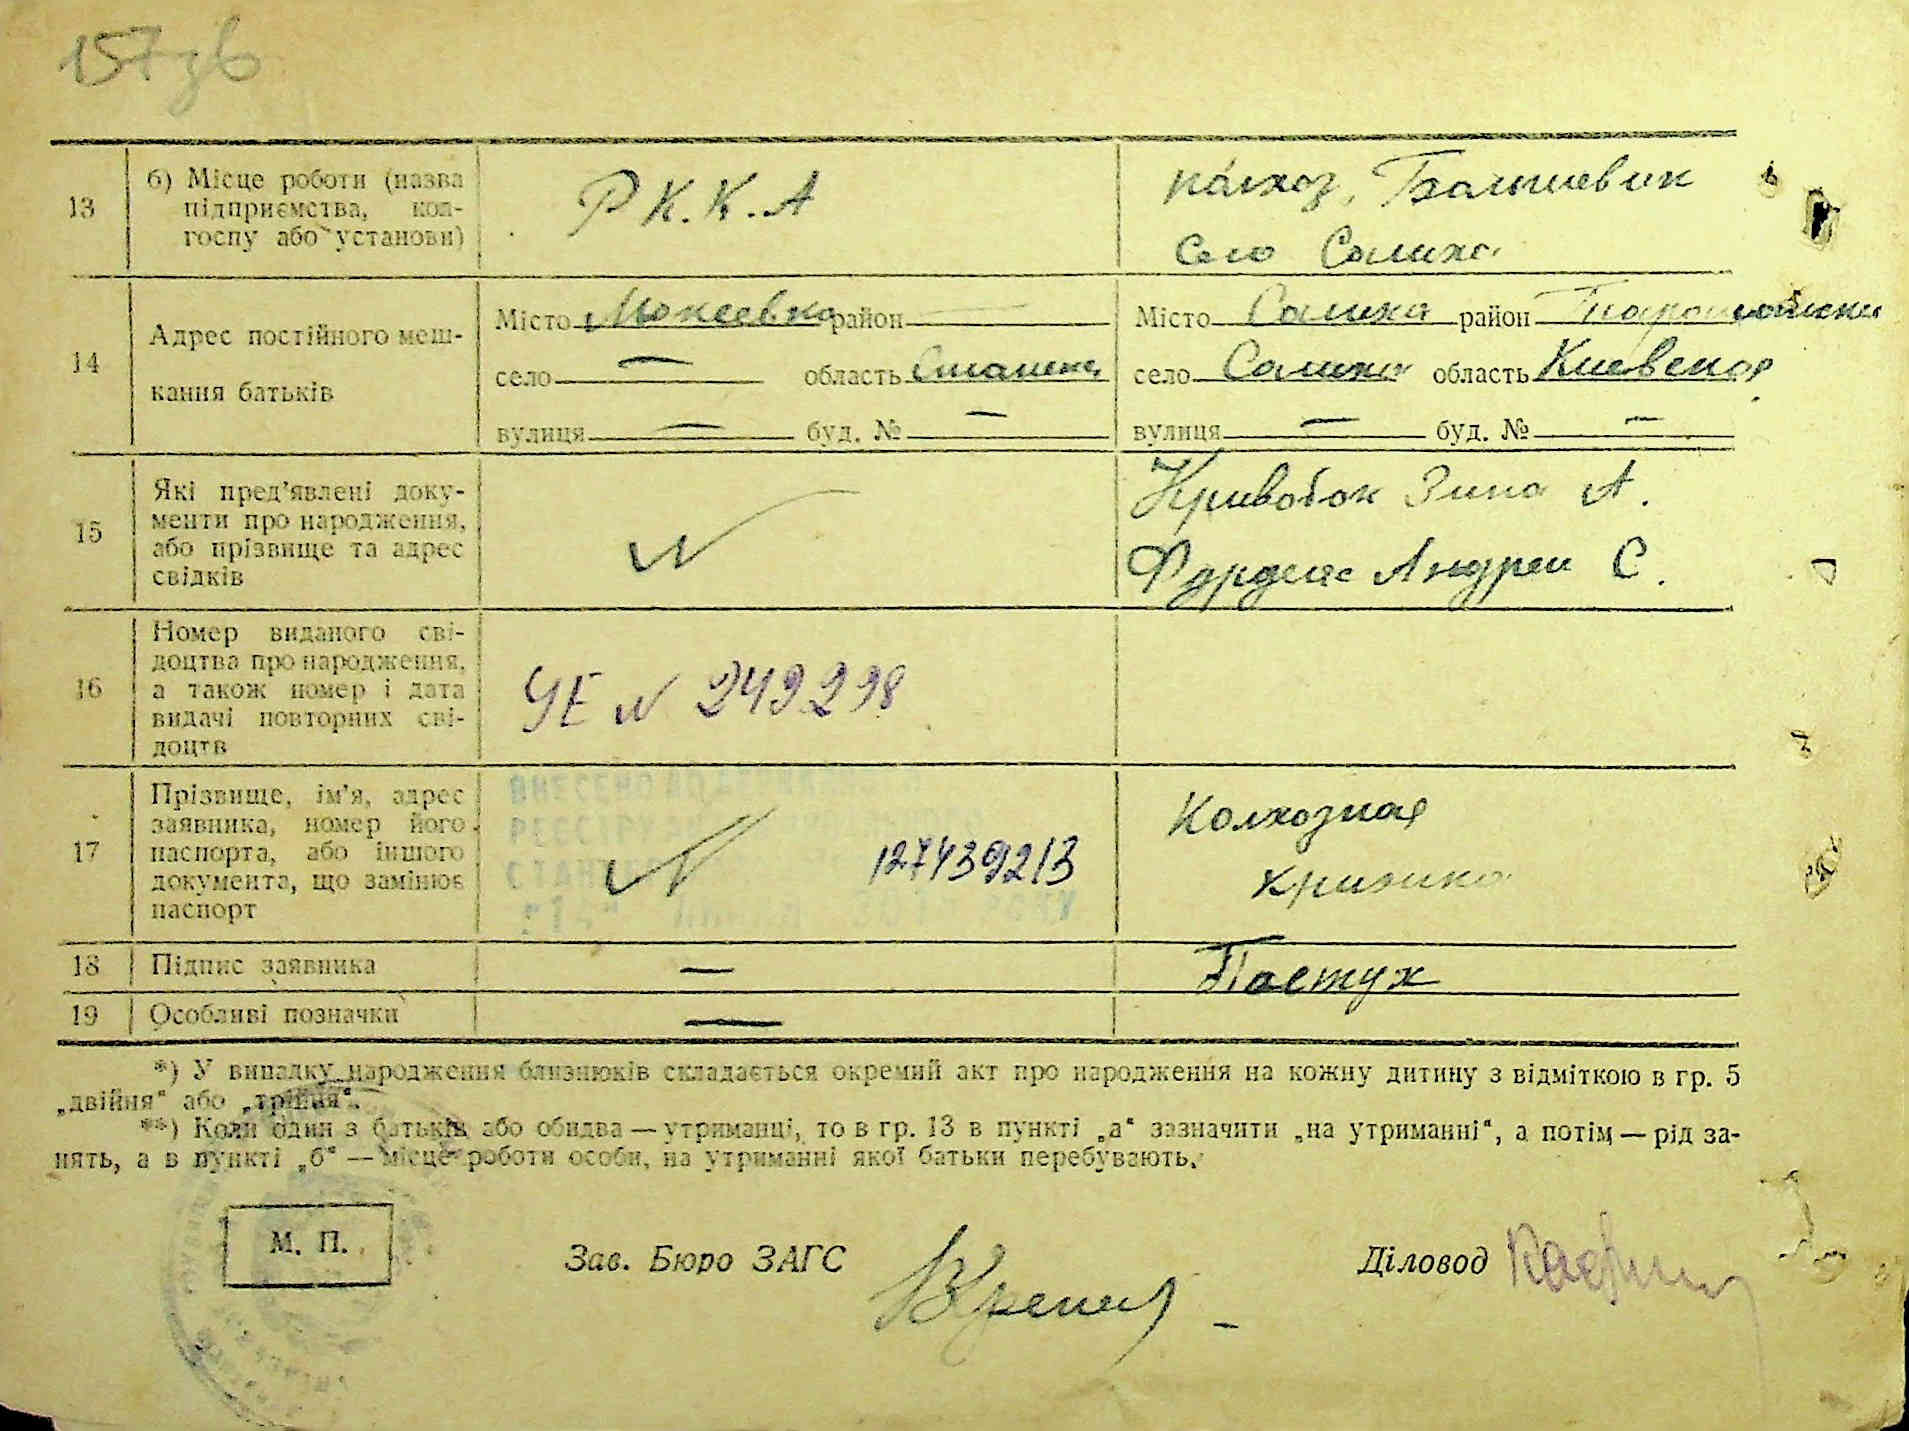 157 зв
13 б) Місце роботи (назва підприємства, кол-госпу або установи)
Р К. К. А
колхоз, Большевик
Село Салиха
14 Адрес постійного меш-
кання батьків
Місто Мокеевка район —
село — область Сталинс
вулиця — буд. № —
Місто Салиха район
село Салиха область Киевская
вулиця — буд. № —
15 Які пред'явлені доку-
менти про народження,
або прізвище та адрес
свідків
Кривобок Зина А.
Андреи С.
16 Номер виданого сві-
доцтва про народження,
а також номер і дата
видачі повторних сві-
доцтв
УЕ N 249298
17 Прізвище, ім'я, адрес
заявника, номер його
паспорта, або іншого
документа, що замінює
паспорт
ВНЕСЕНО ДО
127439213
Колхозная
книжка
18 Підпис заявника —
Пастух
19 Особливі позначки —
*) У випадку народження близнюків складається окремий акт про народження на кожну дитину з відміткою в гр. 5
„двійня“ або „трійня“.
**) Коли один з батьків або обидва — утриманці, то в гр. 13 в пункті „а“ зазначити „на утриманні“, а потім — рід за-
нять, а в пункті „б“ — місце роботи особи, на утриманні якої батьки перебувають.
М. П.
Зав. Бюро ЗАГС
Діловод